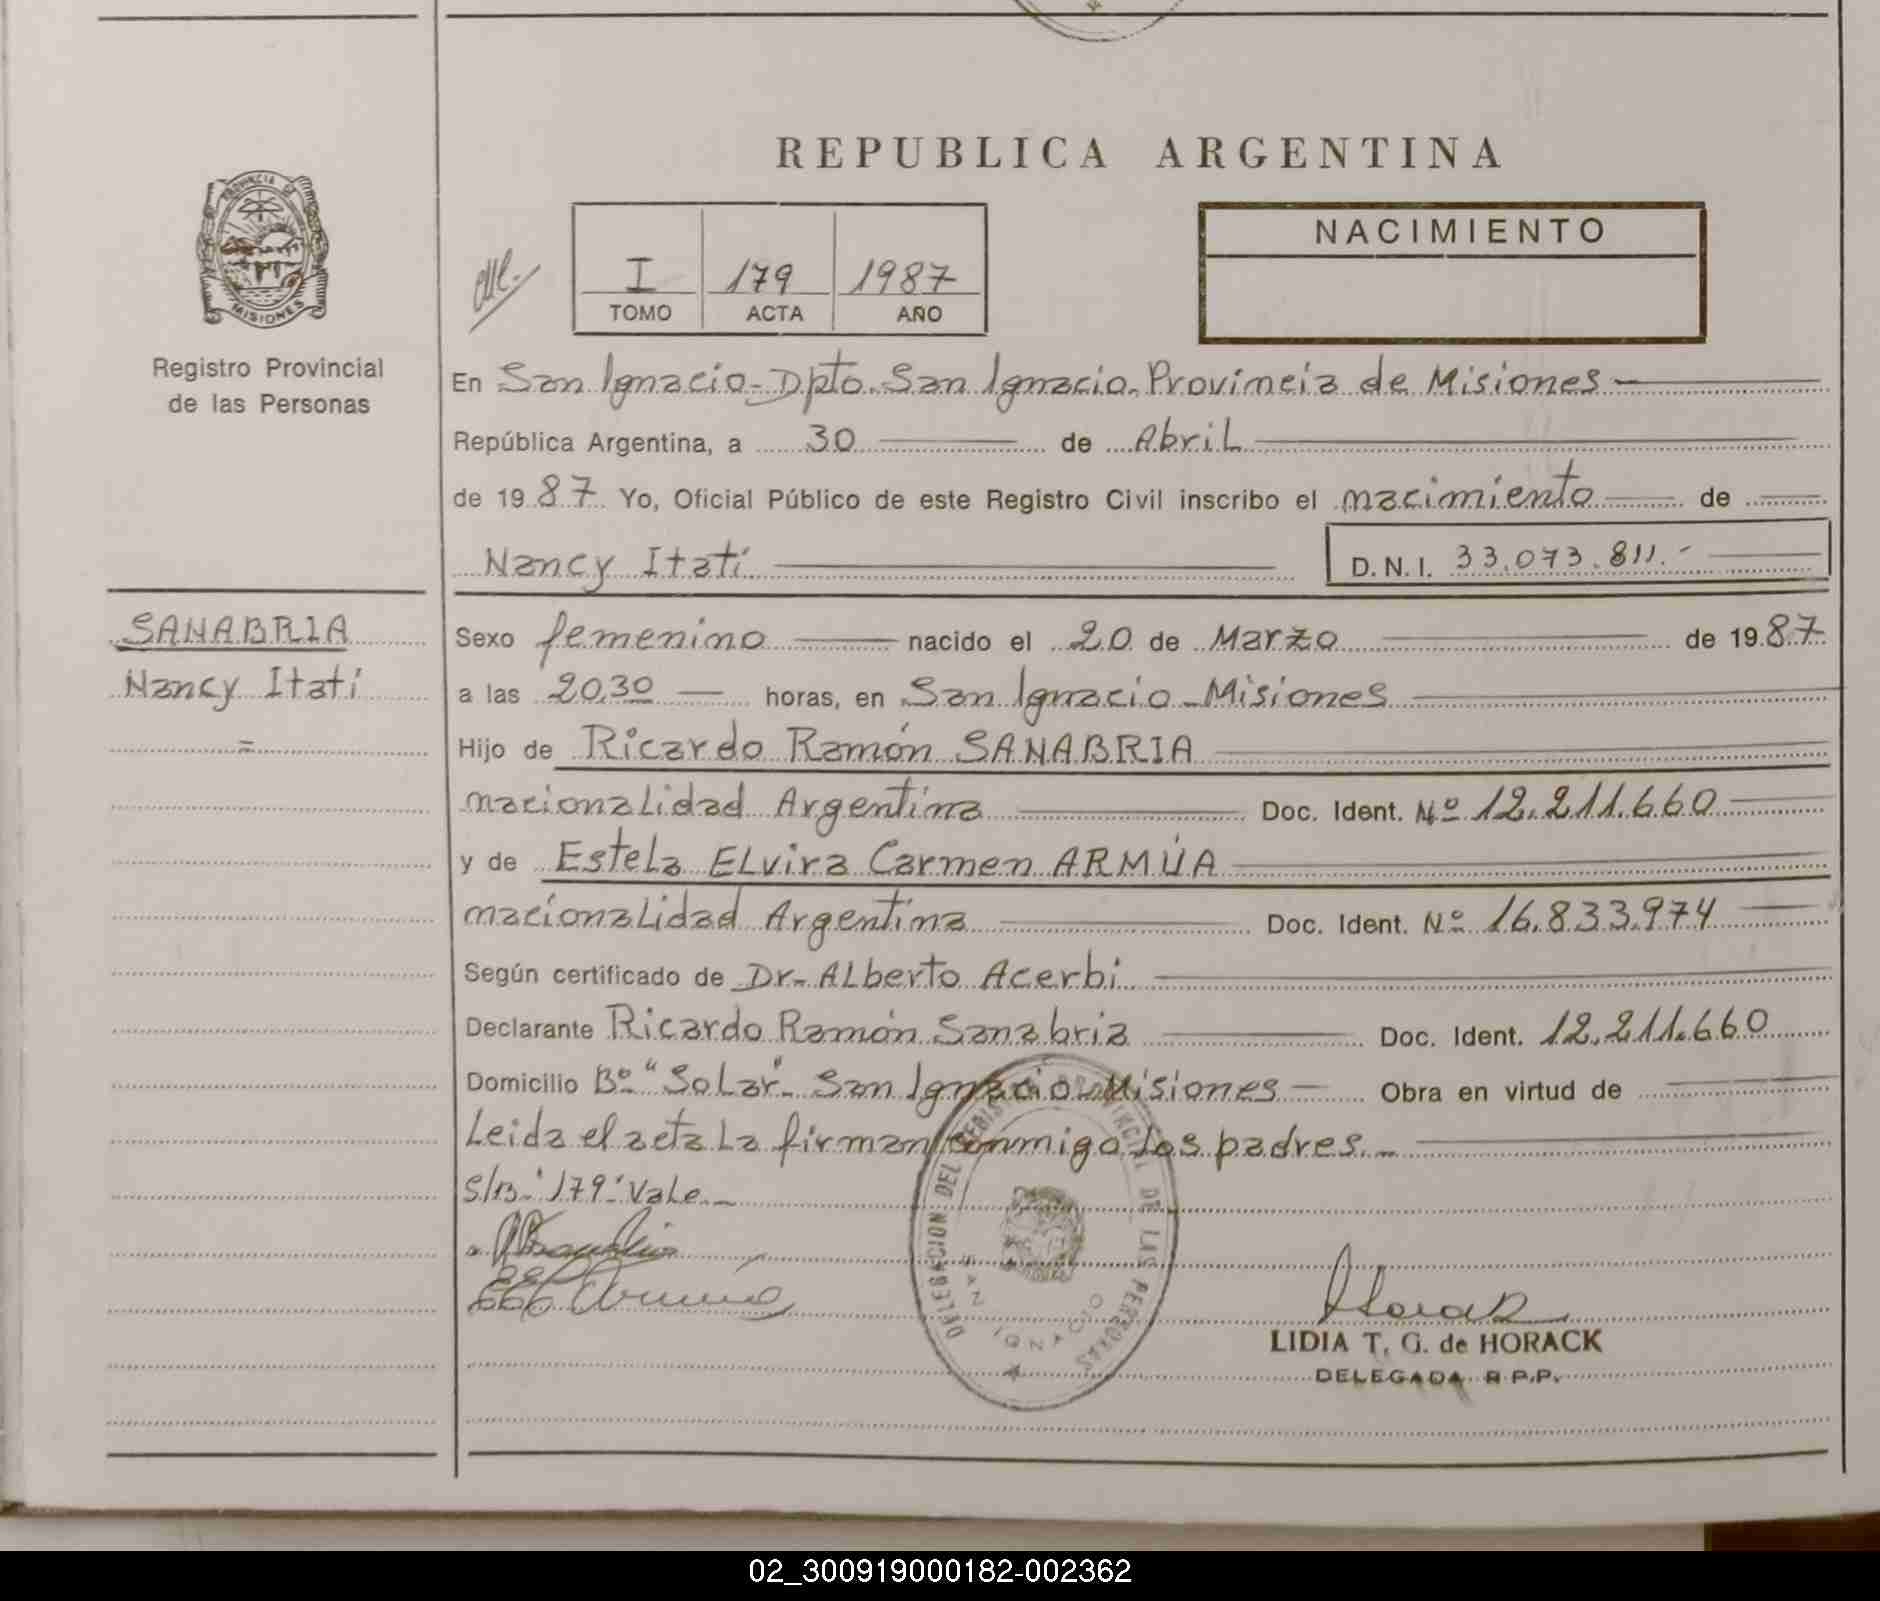 REPUBLICA ARGENTINA
PROVINCIA DE
MISIONES
Registro Provincial
de las Personas
I 179 1987
TOMO ACTA AÑO
NACIMIENTO
En San Ignacio - Dpto. San Ignacio - Provincia de Misiones -
República Argentina, a 30 de Abril
de 1987 Yo, Oficial Público de este Registro Civil inscribo el nacimiento de
Nancy Itatí D.N.I. 33.073.811.-
SANABRIA
Nancy Itatí
=
Sexo femenino nacido el 20 de Marzo de 1987
a las 20,30 horas, en San Ignacio - Misiones
Hijo de Ricardo Ramón SANABRIA
nacionalidad Argentina Doc. Ident. Nº 12.211.660
y de Estela Elvira Carmen ARMÚA
nacionalidad Argentina Doc. Ident. Nº 16.833.974
Según certificado de Dr. Alberto Acerbi
Declarante Ricardo Ramón Sanabria Doc. Ident. 12.211.660
Domicilio Bº "Solar" - San Ignacio - Misiones Obra en virtud de
Leida el acta la firman conmigo los padres. -
S/B: "179" Vale. -
DELEGACION DEL REGISTRO PROVINCIAL DE LAS PERSONAS
SAN IGNACIO
Horack
LIDIA T. G. de HORACK
DELEGADA R.P.P.
02_300919000182-002362